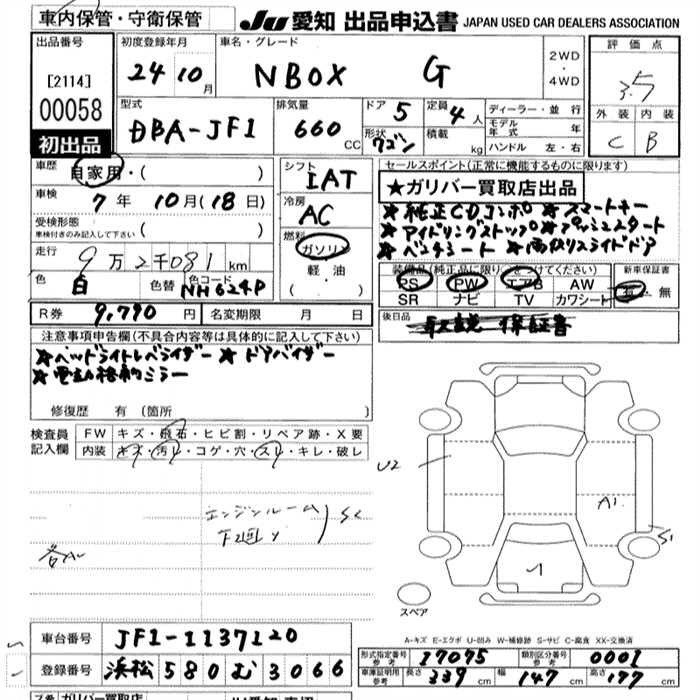 車内保管・守衛保管
JU 愛知 出品申込書 JAPAN USED CAR DEALERS ASSOCIATION
出品番号
[2114]
00058
初出品
初度登録年月
24 10月
車名・グレード
N BOX G
2WD・4WD
評価点
3.5
外装 内装
C B
型式
DBA-JF1
排気量
660 CC
ドア 5
形状 ワゴン
定員 4人
積載 kg
ディーラー・並行
モデル年式 年
ハンドル 左・右
車歴 自家用・( )
車検 7年 10月(18日)
受検形態
車検付きのみ記入して下さい ( )
走行 9万2千081km
色 白 色替 色コード NH624P
シフト IAT
冷房 AC
燃料 ガソリン
軽油
( )
セールスポイント(正常に機能するものに限ります)
★ガリバー買取店出品
★純正CDコンポ ★スマートキー
★アイドリングストップ ★プッシュスタート
★ベンチシート ★両側スライドドア
装備品(純正品に限り○をつけてください)
PS PW エアB AW
SR ナビ TV カワシート
新車保証書
有・無
後日品 取説 保証書
R券 9,790円 名変期限 月 日
注意事項申告欄(不具合内容等は具体的に記入して下さい)
★ヘッドライトレベライザー ★ドアバイザー
★電動格納ミラー
修復歴 有(箇所 )
検査員記入欄
FW キズ・飛石・ヒビ割・リペア跡・X要
内装 キズ・汚れ・コゲ・穴・スレ・キレ・破レ
エンジンルーム
下廻り
U2
A1
S1
スペア
A-キズ E-エクボ U-凹み W-補修跡 S-サビ C-腐食 XX-交換済
車台番号 JF1-1137120
登録番号 浜松580む3066
形式指定番号参考 17095 類別区分番号参考 0001
車庫証明用参考 長さ 339cm 幅 147cm 高さ 177cm